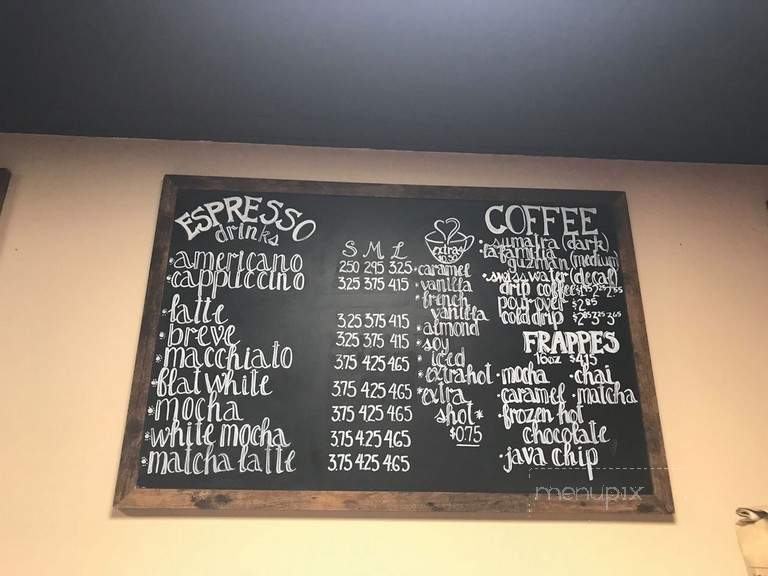 ESPRESSO
drinks
S M L
*americano 2.50 2.95 3.25
*cappuccino 3.25 3.75 4.15
*latte 3.25 3.75 4.15
*breve 3.25 3.75 4.15
*macchiato 3.75 4.25 4.65
*flat white 3.75 4.25 4.65
*mocha 3.75 4.25 4.65
*white mocha 3.75 4.25 4.65
*matcha latte 3.75 4.25 4.65
extras
$0.50
*caramel
*vanilla
*french
vanilla
*almond
*soy
*iced
*extra hot
*extra
shot*
$0.75
COFFEE
*sumatra (dark)
*la familia
guzman (medium)
*swiss water (decaf)
drip coffee
pour over $2.85
cold drip
FRAPPES
16oz $4.15
*mocha *chai
*caramel *matcha
*frozen hot
chocolate
*java chip
menupix